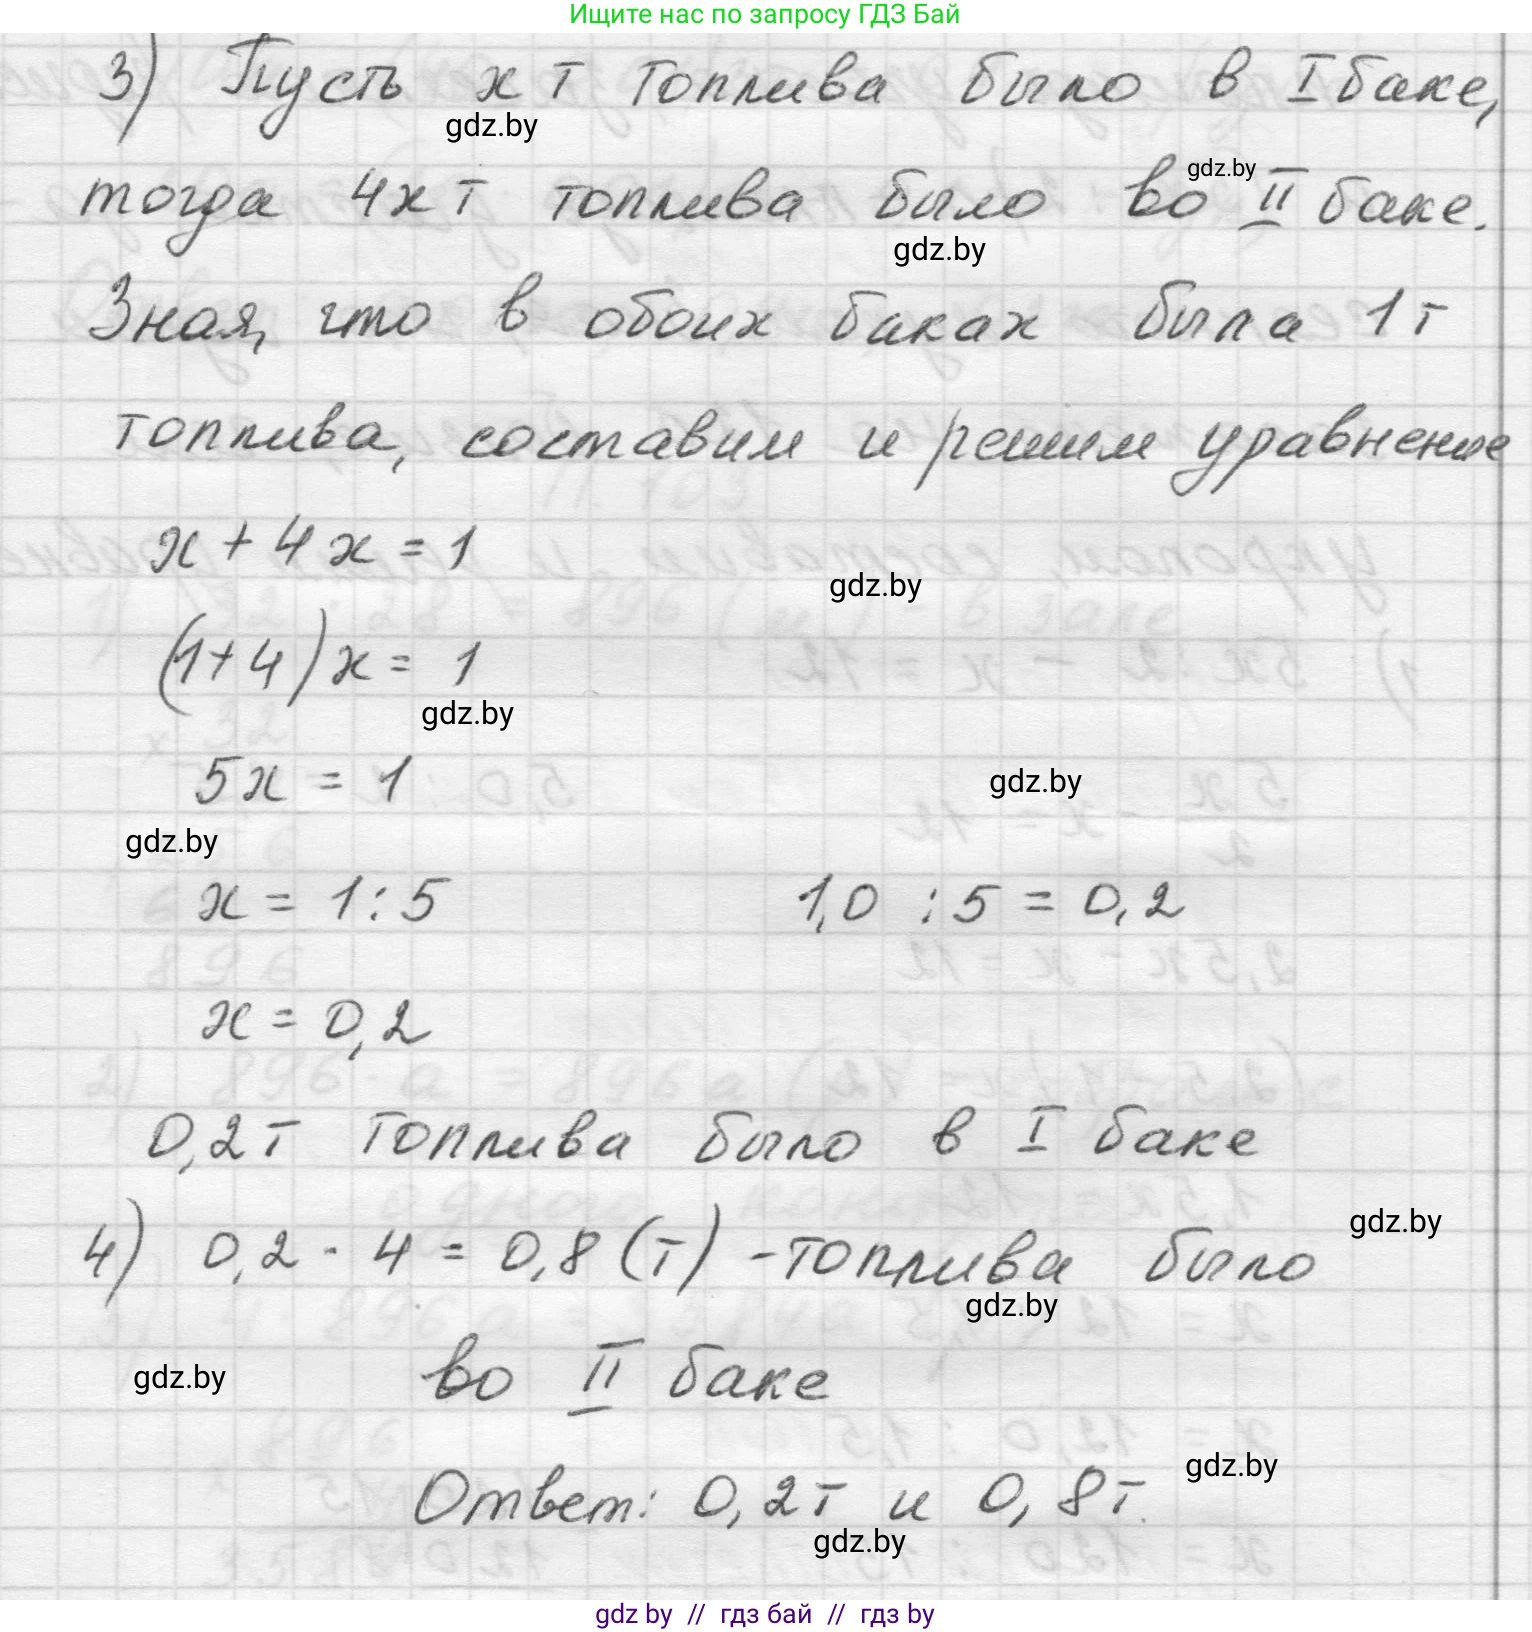 Ищите нас по запросу ГДЗ Бай
3) Пусть x т топлива было в I баке,
gdz.by
gdz.by
тогда 4x т топлива было во II баке.
gdz.by
Зная, что в обоих баках была 1т
топлива, составим и решим уравнение
x + 4x = 1
gdz.by
(1+4)x = 1
gdz.by
5x = 1
gdz.by
gdz.by
x = 1:5 1,0 :5 = 0,2
x = 0,2
0,2т топлива было в I баке
gdz.by
4) 0,2 · 4 = 0,8 (т) - топлива было
gdz.by
gdz.by
во II баке
gdz.by
Ответ: 0,2т и 0,8т.
gdz.by
gdz by // гдз бай // гдз by